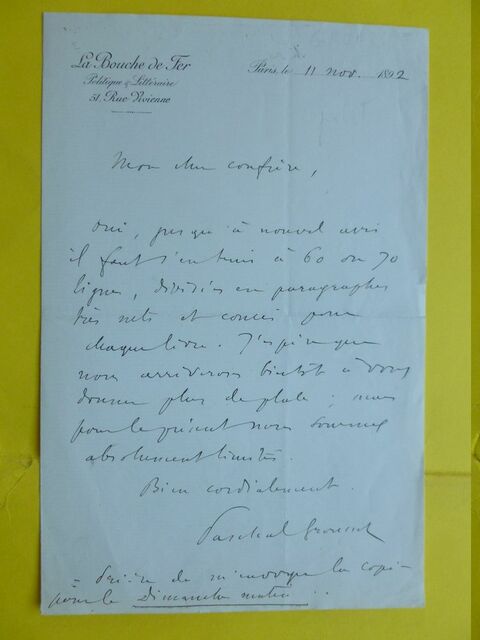 La Bouche de Fer
Politique & Littéraire
51, Rue Vivienne
Paris, le 11 nov. 1892
Mon cher confrère,
Oui, jusqu'à nouvel avis
il faut s'en tenir à 60 ou 70
lignes, divisées en paragraphes
très nets et concis pour
chaque livre. J'espère que
nous arriverons bientôt à vous
donner plus de place ; mais
pour le présent nous sommes
absolument limités.
Bien cordialement.
Paschal Grousset
= Prière de m'envoyer la copie
pour le Dimanche matin